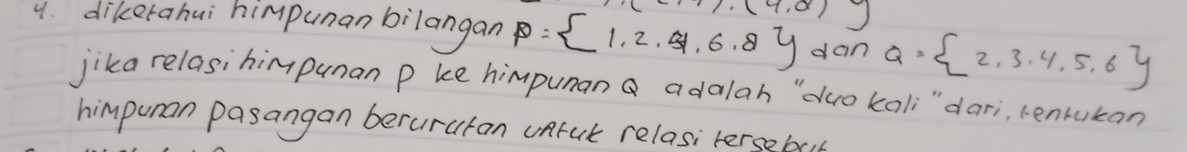 4. diketahui himpunan bilangan P = { 1. 2. 4, 6. 8 } dan Q = { 2, 3. 4, 5. 6 }
jika relasi himpunan P ke himpunan Q adalah "dua kali" dari, tentukan
himpunan pasangan berurutan untuk relasi tersebut